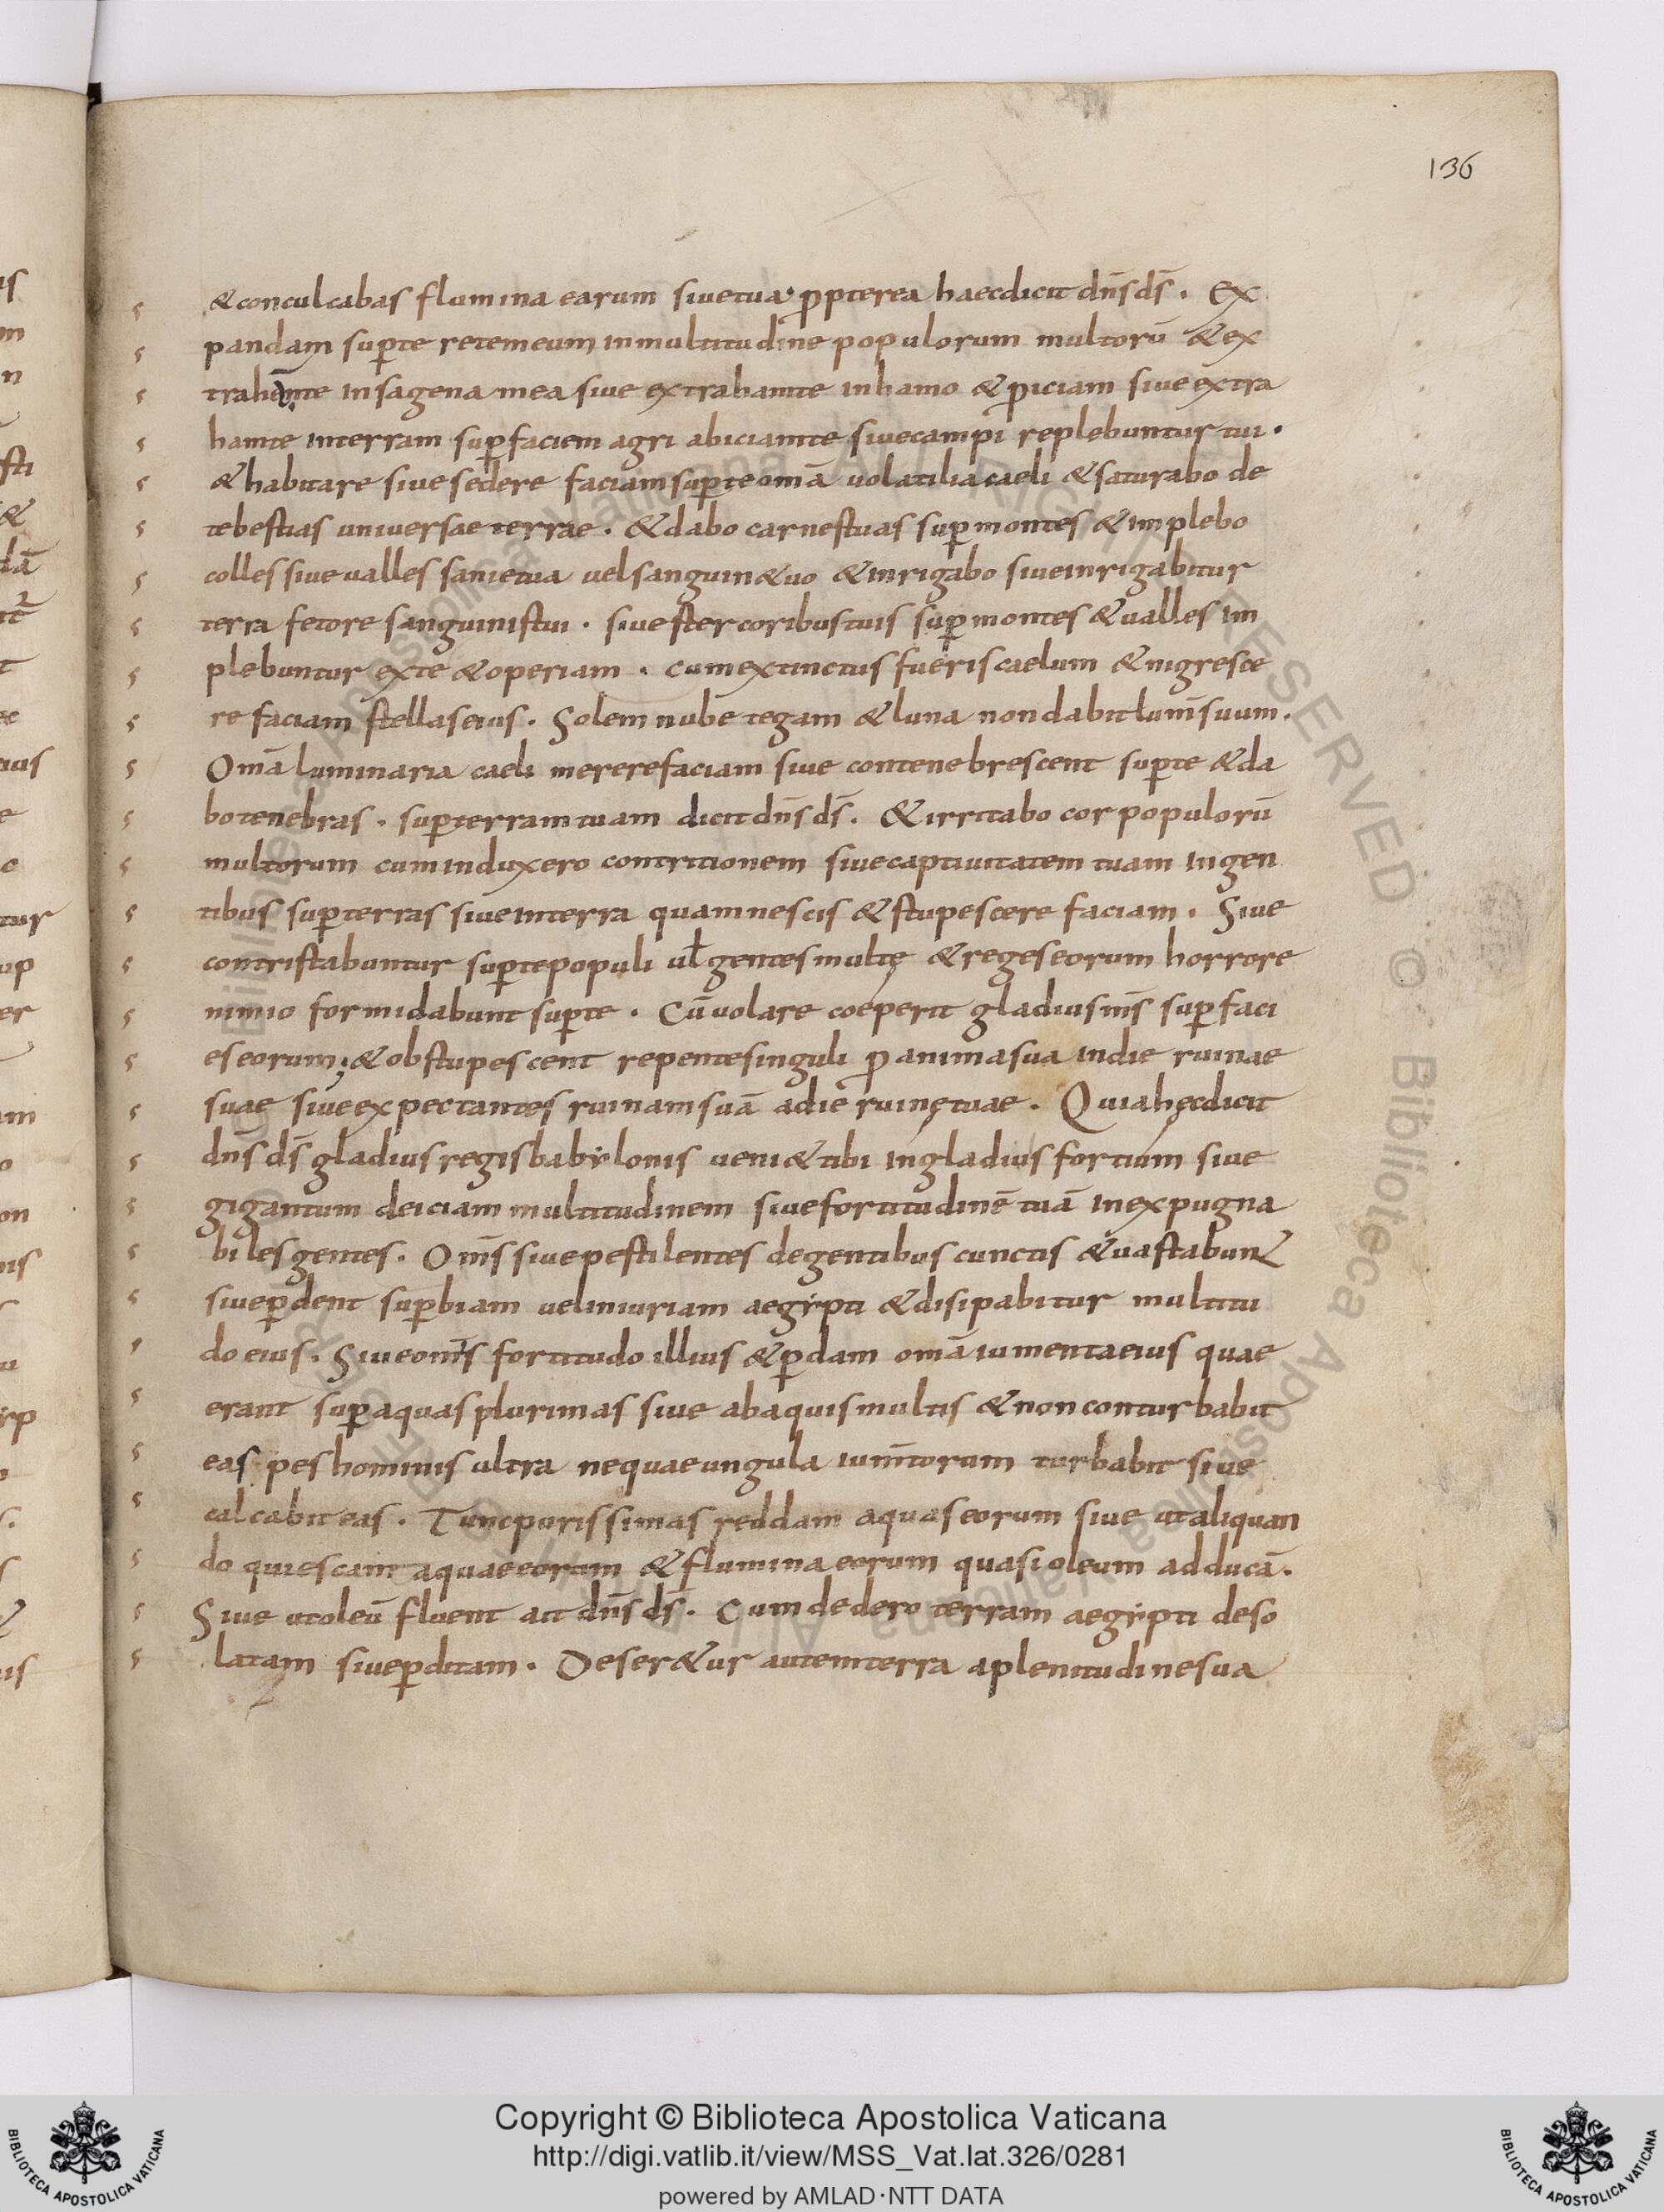 136
& conculcabas flumina earum siue tua· ꝓpterea haec dicit dn̄s ds̄. Ex
pandam suꝑ te rete meum in multitudine populorum multorū & ex
trahā te in sagena mea siue extraham te in hamo & ꝓiciam siue extra
ham te in terram suꝑ faciem agri abiciam te siue campi replebuntur tui.
& habitare siue sedere faciam suꝑ te omā uolatilia caeli & saturabo de
te bestias universae terrae. & dabo carnes tuas suꝑ montes & implebo
colles siue ualles sanie tua uel sanguin& uo & inrigabo siue inrigabitur
terra fetore sanguinis tui. siue stercoribus tuis suꝑ montes & ualles im
plebuntur ex te & operiam. cum extinctus fueris caelum & nigresce
re faciam stellas eius. Solem nube tegam & luna non dabit lum̄ suum.
Omā luminaria caeli merere faciam siue contenebrescent suꝑ te & da
bo tenebras. suꝑ terram tuam dicit dn̄s ds̄. & irritabo cor populorū
multorum cum induxero contritionem siue captiuitatem tuam in gen
tibus suꝑ terras siue in terra quam nescis & stupescere faciam. Siue
contristabuntur suꝑ te populi ul̄ gentes multę & reges eorum horrore
nimio formidabunt suꝑ te. Cū uolare coeperit gladius ms̄ suꝑ faci
es eorum; & obstupescent repente singuli ꝓ anima sua in die ruinae
suae siue expectantes ruinam suā a die ruinę tuae. Quia hęc dicit
dn̄s ds̄ gladius regis babẏlonis ueni& tibi in gladius fortium siue
gigantum deiciam multitudinem siue fortitudinē tuā inexpugna
biles gentes. Oms̄ siue pestilentes de gentibus cunctis & uastabunt
siue ꝑdent suꝑbiam uel iniuriam aegẏpti & disipabitur multitu
do eius. Siue omīs fortitudo illius & ꝑdam omā iumenta eius quae
erant suꝑ aquas plurimas siue ab aquis multis & non conturbabit
eas pes hominis ultra neque ungula ium̄torum turbabit siue
calcabit eas. Tunc purissimas reddam aquas eorum siue ut aliquan
do quiescant aquae eorum & flumina eorum quasi oleum adducā.
Siue ut oleū fluent ait dn̄s ds̄. Cum dedero terram aegẏpti deso
latam siue ꝑditam. Deser&ur autem terra a plenitudine sua
Copyright © Biblioteca Apostolica Vaticana
http://digi.vatlib.it/view/MSS_Vat.lat.326/0281
powered by AMLAD·NTT DATA
BIBLIOTECA APOSTOLICA VATICANA
BIBLIOTECA APOSTOLICA VATICANA